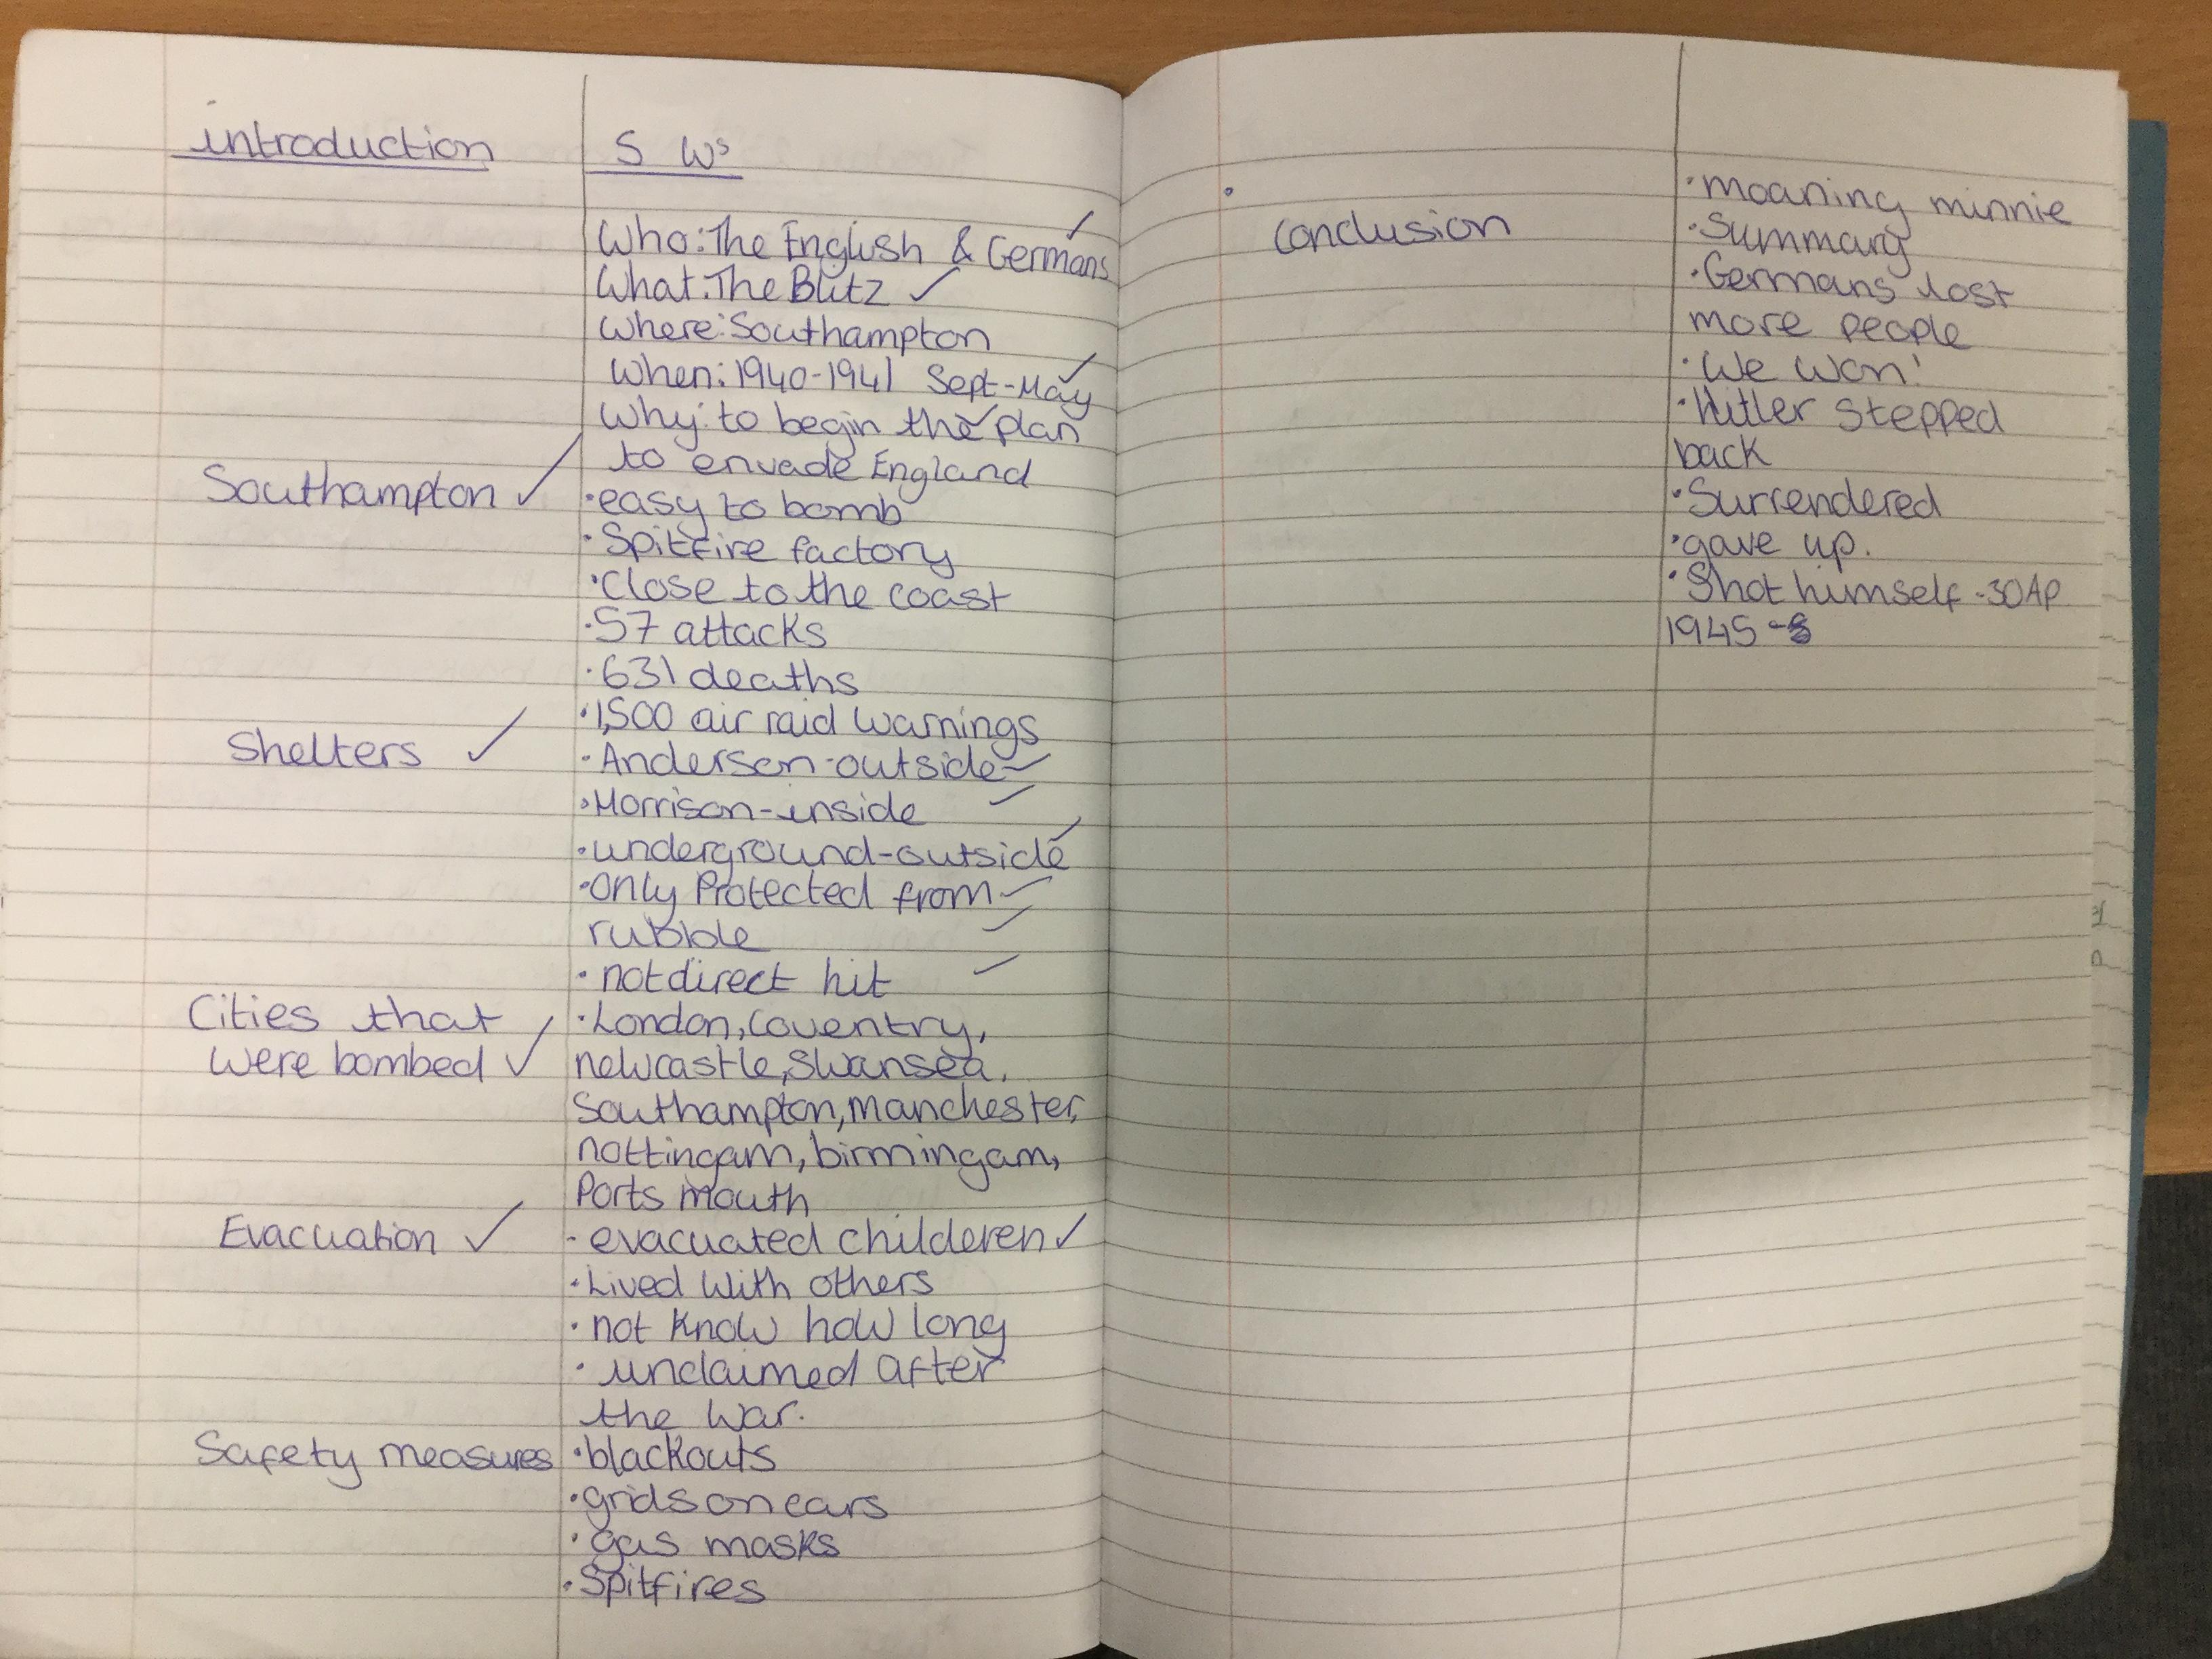 introduction
5 Ws
Who: The English & Germans
What: The Blitz
Where: Southampton
When: 1940-1941 Sept-May
Why: to begin the plan
to envade England
Southampton
• easy to bomb
• Spitfire factory
• Close to the coast
• 57 attacks
• 631 deaths
• 1,500 air raid warnings
Shelters
• Anderson-outside
• Morrison-inside
• underground-outside
• only Protected from
rubble
• not direct hit
Cities that
were bombed
• London, Coventry,
newcastle, Swansea,
Southampton, manchester,
nottingam, birmingam,
Ports mouth
Evacuation
- evacuated childeren
• Lived With others
• not know how long
• unclaimed after
the war.
Safety measures
• blackouts
• grids on cars
• gas masks
• Spitfires
Conclusion
• moaning minnie
• Summary
• Germans lost
more people
• We won!
• Hitler stepped
back
• Surrendered
• gave up.
• Shot himself - 30 AP
1945